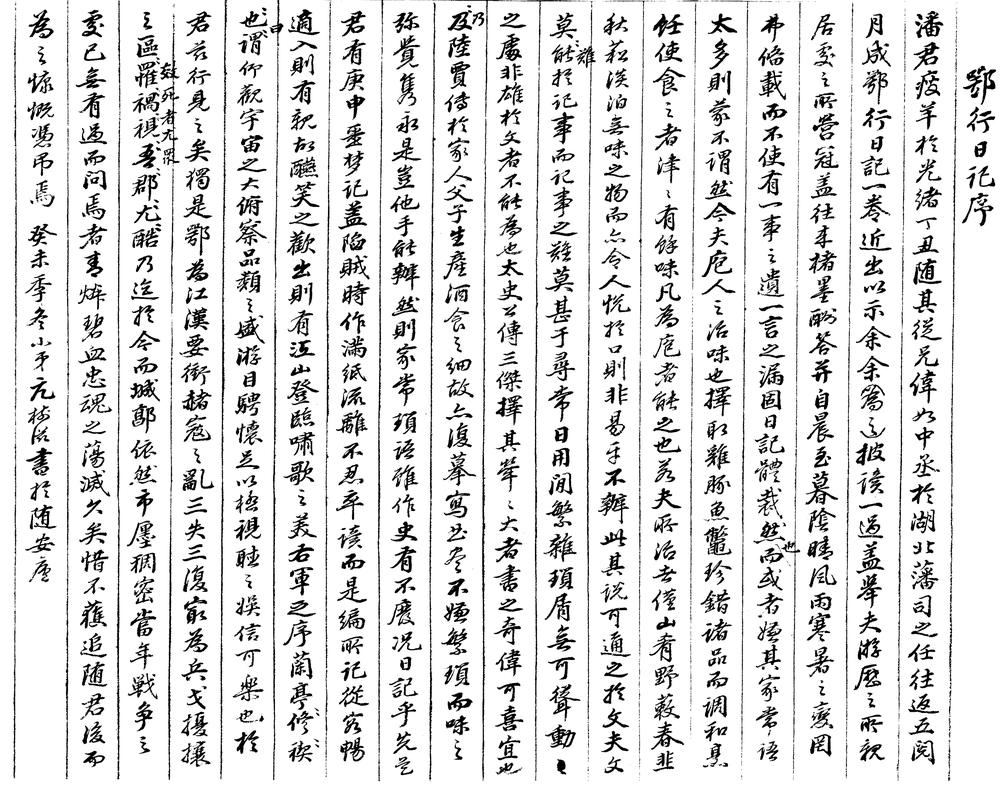 鄂行日记序
潘君疫羊於光绪丁丑随其從兄偉如中丞於湖北藩司之任往返五閱
月成鄂行日記一卷近出以示余余爲之披读一過蓋舉夫游歷之所觀
居處之所營冠盖往来楮墨酬答并自晨至暮陰晴風雨寒暑之變罔
弗俻載而不使有一事之遺一言之漏固日記體裁然也而或者嫌其家常语
太多則蒙不谓然今夫庖人之治味也擇取雞豚魚鼈珍錯诸品而调和烹
飪使食之者津之有餘味凡為庖者能之也若夫所治者僅山肴野蔌春韭
秋菘淡泊無味之物而亦令人悦於口則非易乎不辦此其说可通之於文夫文
莫難於記事而記事之難莫甚于尋常日用间繁雜瑣屑無可聳動之
之處非雄於文者不能為也太史公傳三傑擇其犖之大者書之奇偉可喜宜也
乃陸賈傳於家人父子生產酒食之细故亦復摹寫曲盡不嫌繁瑣而味之
弥覺隽永是豈他手能辦然則家常瑣语雖作史有不廢况日記乎先是
君有庚申噩梦記蓋陷賊時作滿紙流離不忍卒读而是编所記從容暢
適入則有親故讌笑之歡出則有江山登臨嘯歌之美右軍之序蘭亭修禊
也曰谓仰觀宇宙之大俯察品類之盛游目騁懷足以極視聽之娱信可樂也於
君兹行見之矣獨是鄂為江漢要衝赭寇之亂三失三復最為兵戈擾攘
之區罹禍殺死者尤眾視吾郡尤酷乃迄於今而城鄙依然市廛稠密當年戰争之
處已無有過而问焉者青燐碧血忠魂之蕩滅久矣惜不獲追随君後而
為之慷慨憑吊焉 癸未季冬小弟亢树滋書於随安廬